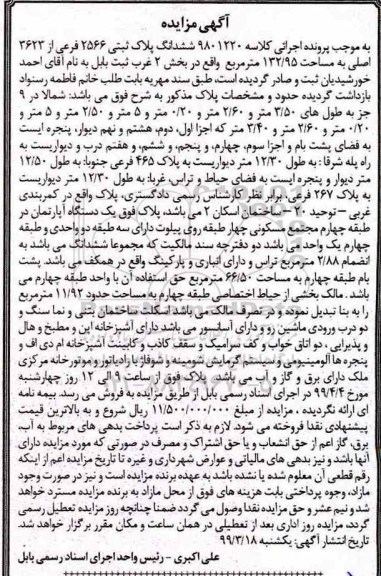 آگهی مزایده
به موجب پرونده اجرائی کلاسه ۹۸۰۱۲۲۰ ششدانگ پلاک ثبتی ۲۵۶۶ فرعی از ۳۶۲۳
اصلی به مساحت ۱۳۲/۹۵ مترمربع واقع در بخش ۲ غرب ثبت بابل به نام آقای احمد
خورشیدیان ثبت و صادر گردیده است، طبق سند مهریه بابت طلب خانم فاطمه رستواد
بازداشت گردیده حدود و مشخصات پلاک مذکور به شرح فوق می باشد: شمالا در ۹
جز به طول های ۳/۵۰ متر و ۲/۶۰ متر و ۰/۲۰ متر و ۵ متر و ۲/۵۰ متر و ۵ متر و
۰/۲۰ متر و ۲/۶۰ متر و ۳/۴۰ متر که اجزا اول، دوم، هشتم و نهم دیوار، پنجره ایست
به فضای پشت بام و اجزا سوم، چهارم، و پنجم، و ششم، و هفتم درب و دیواریست به
راه پله شرقا : به طول ۱۲/۳۰ متر دیواریست به پلاک ۴۶۵ فرعی جنوبا: به طول ۱۲/۵۰
متر دیوار و پنجره ایست به فضای حیاط و تراس، غربا: به طول ۱۲/۳۰ متر دیواریست
به پلاک ۲۶۷ فرعی، برابر نظر کارشناس رسمی دادگستری، پلاک واقع در کمربندی
غربی – توحید ۲۰ – ساختمان اسکان ۲ می باشد، پلاک فوق یک دستگاه آپارتمان در
طبقه چهارم مجتمع مسکونی چهار طبقه روی پیلوت دارای سه طبقه دو واحدی و طبقه
چهارم یک واحدی می باشد دو دفترچه سند مالکیت که مجموعا ششدانگ می باشد به
انضمام ۲/۸۸ مترمربع تراس و دارای انباری و پارکینگ واقع در همکف می باشد. پشت
بام طبقه چهارم به مساحت ۶۶/۵۰ مترمربع حق استفاده آن با واحد طبقه چهارم می
باشد. مالک بخشی از حیاط اختصاصی طبقه چهارم به مساحت حدود ۱۱/۹۲ مترمربع
را به بنا تبدیل نموده و در تصرف مالک می باشد اسکلت ساختمان بتنی و نما سنگ و
دو درب ورودی ماشین رو و دارای آسانسور می باشد دارای آشپزخانه اپن و مطبخ و هال
و پذیرایی، دو اتاق خواب و کف سرامیک و سقف کاذب و کابینت آشپزخانه ام دی اف و
پنجره ها آلومینیومی و سیستم گرمایش شومینه و شوفاژ با رادیاتور و موتورخانه مرکزی
ملک دارای برق و گاز و آب می باشد. پلاک فوق از ساعت ۹ الی ۱۲ روز چهارشنبه
مورخ ۹۹/۴/۴ در اجرای اسناد رسمی بابل از طریق مزایده به فروش می رسد. بیمه نامه
ای ارائه نگردیده ، مزایده از مبلغ ۱۱/۵۰۰/۰۰۰/۰۰۰ ریال شروع و به بالاترین قیمت
پیشنهادی نقدا فروخته می شود. لازم به ذکر است پرداخت بدهی های مربوط به آب،
برق، گاز اعم از حق انشعاب و یا حق اشتراک و مصرف در صورتی که مورد مزایده دارای
آنها باشد و نیز بدهی های مالیاتی و عوارض شهرداری و غیره تا تاریخ مزایده اعم از اینکه
رقم قطعی آن معلوم شده یا نشده باشد به عهده برنده مزایده است و نیز در صورت وجود
مازاد، وجوه پرداختی بابت هزینه های فوق از محل مازاد به برنده مزایده مسترد خواهد
شد و نیم عشر و حق مزایده نقدا وصول می گردد ضمنا چنانچه روز مزایده تعطیل رسمی
گردد، مزایده روز اداری بعد از تعطیلی در همان ساعت و مکان مقرر برگزار خواهد شد.
تاریخ انتشار آگهی: یکشنبه ۹۹/۳/۱۸
علی اکبری – رئیس واحد اجرای اسناد رسمی بابل